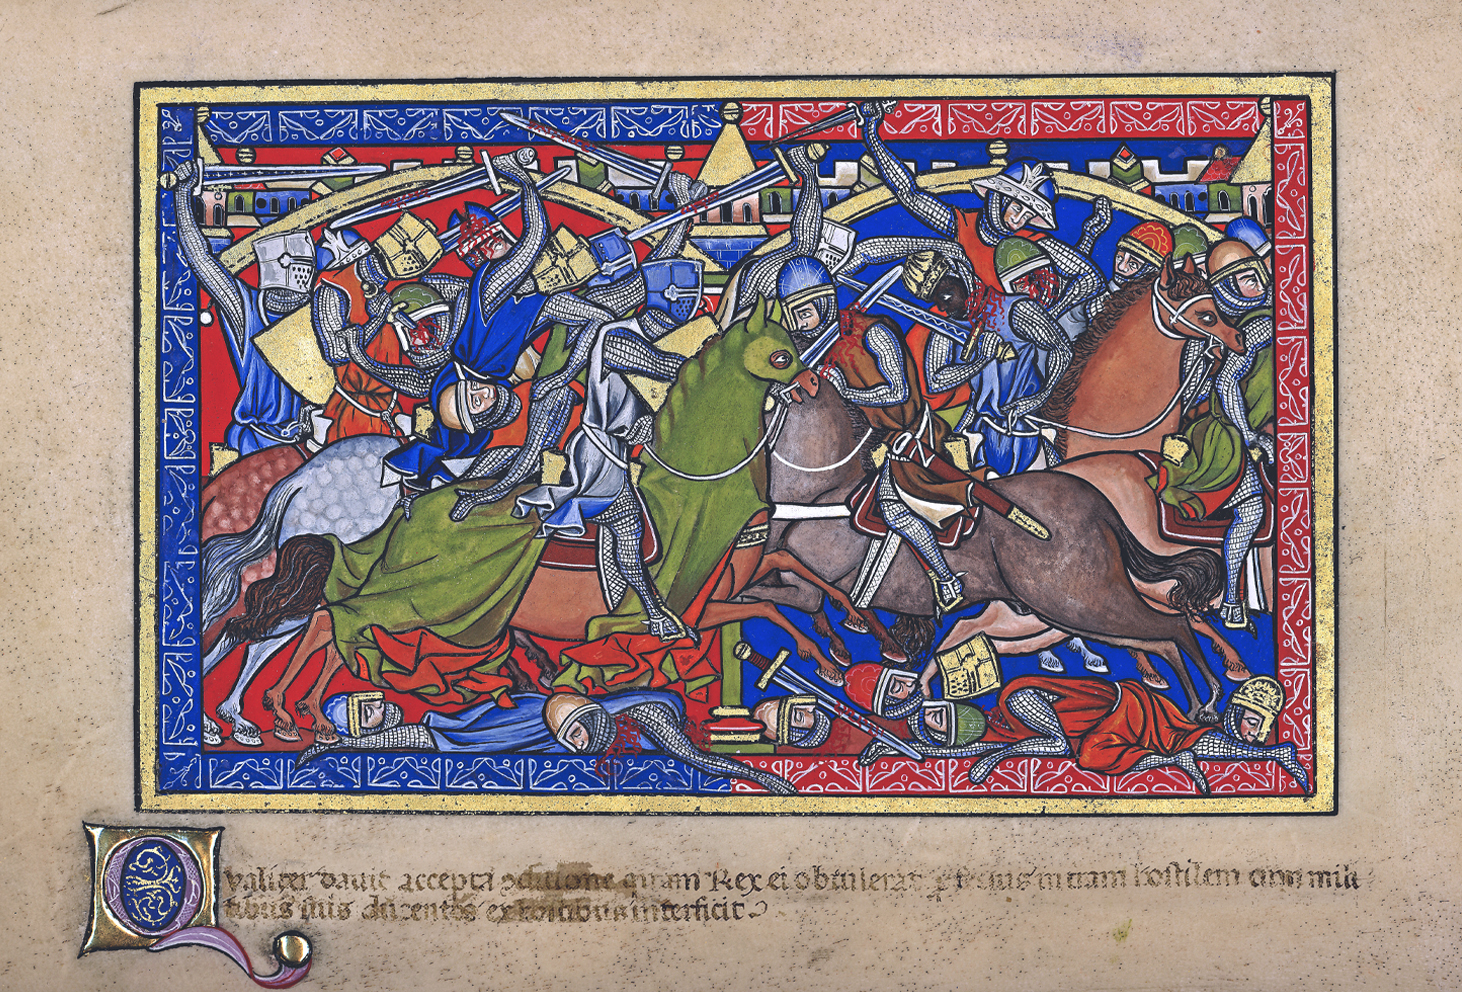 Qualiter dauit accepta ꝯditione quam Rex ei obtulerat ꝓgressus in terram hostilem cum mili
tibus suis ducentos ex hostibus interficit